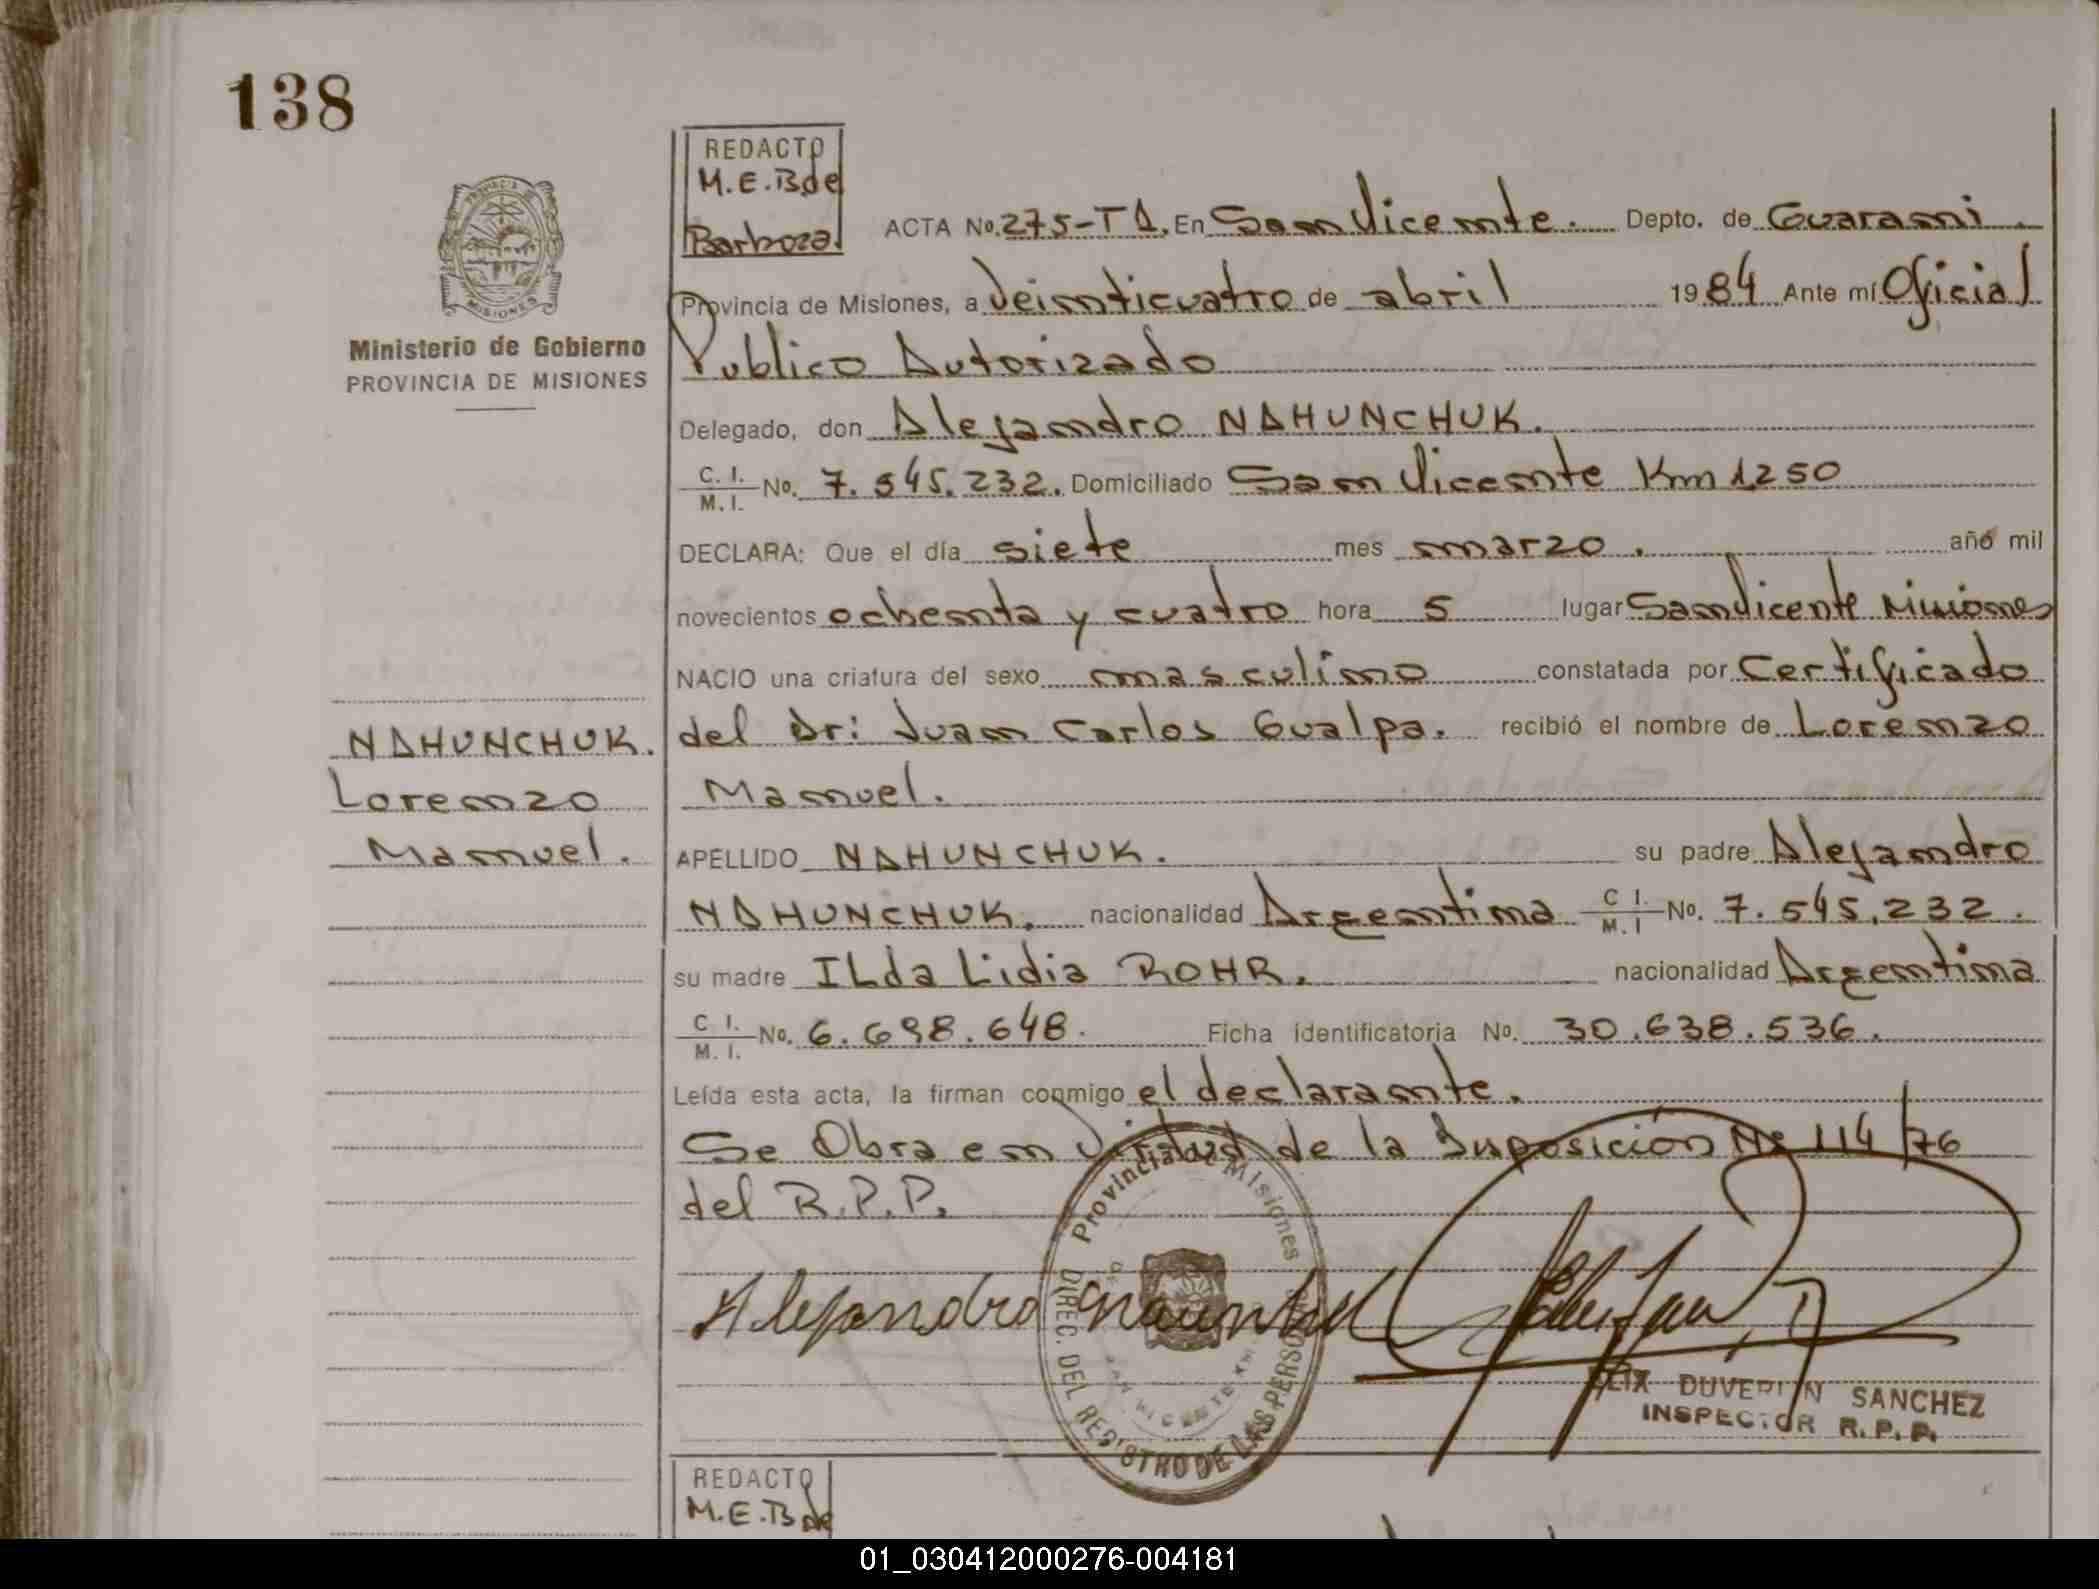 138
REDACTO
M.E.B.de
Barboza.
ACTA No. 275-T1. En San Vicente. Depto. de Guarani.
PROVINCIA DE
MISIONES
Provincia de Misiones, a Veinticuatro de abril 1984 Ante mí Oficial
Ministerio de Gobierno
PROVINCIA DE MISIONES
Publico Autorizado
Delegado, don Alejandro NAHUNCHUK.
C. I. / M. I. No. 7.545.232. Domiciliado San Vicente Km 1250
DECLARA: Que el día siete mes marzo. año mil
novecientos ochenta y cuatro hora 5 lugar San Vicente Misiones
NACIO una criatura del sexo masculino constatada por Certificado
del Dr: Juan Carlos Gualpa. recibió el nombre de Lorenzo
Manuel.
NAHUNCHUK.
Lorenzo
Manuel.
APELLIDO NAHUNCHUK. su padre Alejandro
NAHUNCHUK. nacionalidad Argentina C I. / M. I No. 7.545.232.
su madre ILda Lidia ROHR. nacionalidad Argentina
C I. / M. I. No. 6.698.648. Ficha identificatoria No. 30.638.536.
Leída esta acta, la firman conmigo el declarante.
Se Obra en Virtud de la Disposición Nº 114/76
del R.P.P.
Provincia de Misiones
DIREC. DEL REGISTRO DE LAS PERSO
SAN VICENTE KM
Alejandro
DUVERLIN SANCHEZ
INSPECTOR R.P.P.
REDACTO
M.E.B de
01_030412000276-004181